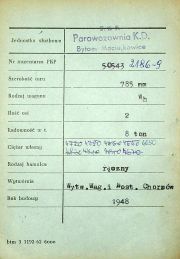 P.K.P.
Jednostka służbowa
Parowozownia K.D.
Bytom-Maciejkowice
Nr inwentarza PKP 50543 2186-9
Szerokość toru 785 mm
Rodzaj wagonu Wh
Ilość osi 2
Ładowność w t. 8 ton
Ciężar własny
Rodzaj hamulca ręczny
Wytwórnia
Wytw.Wag.i Most. Chorzów
Rok budowy 1948